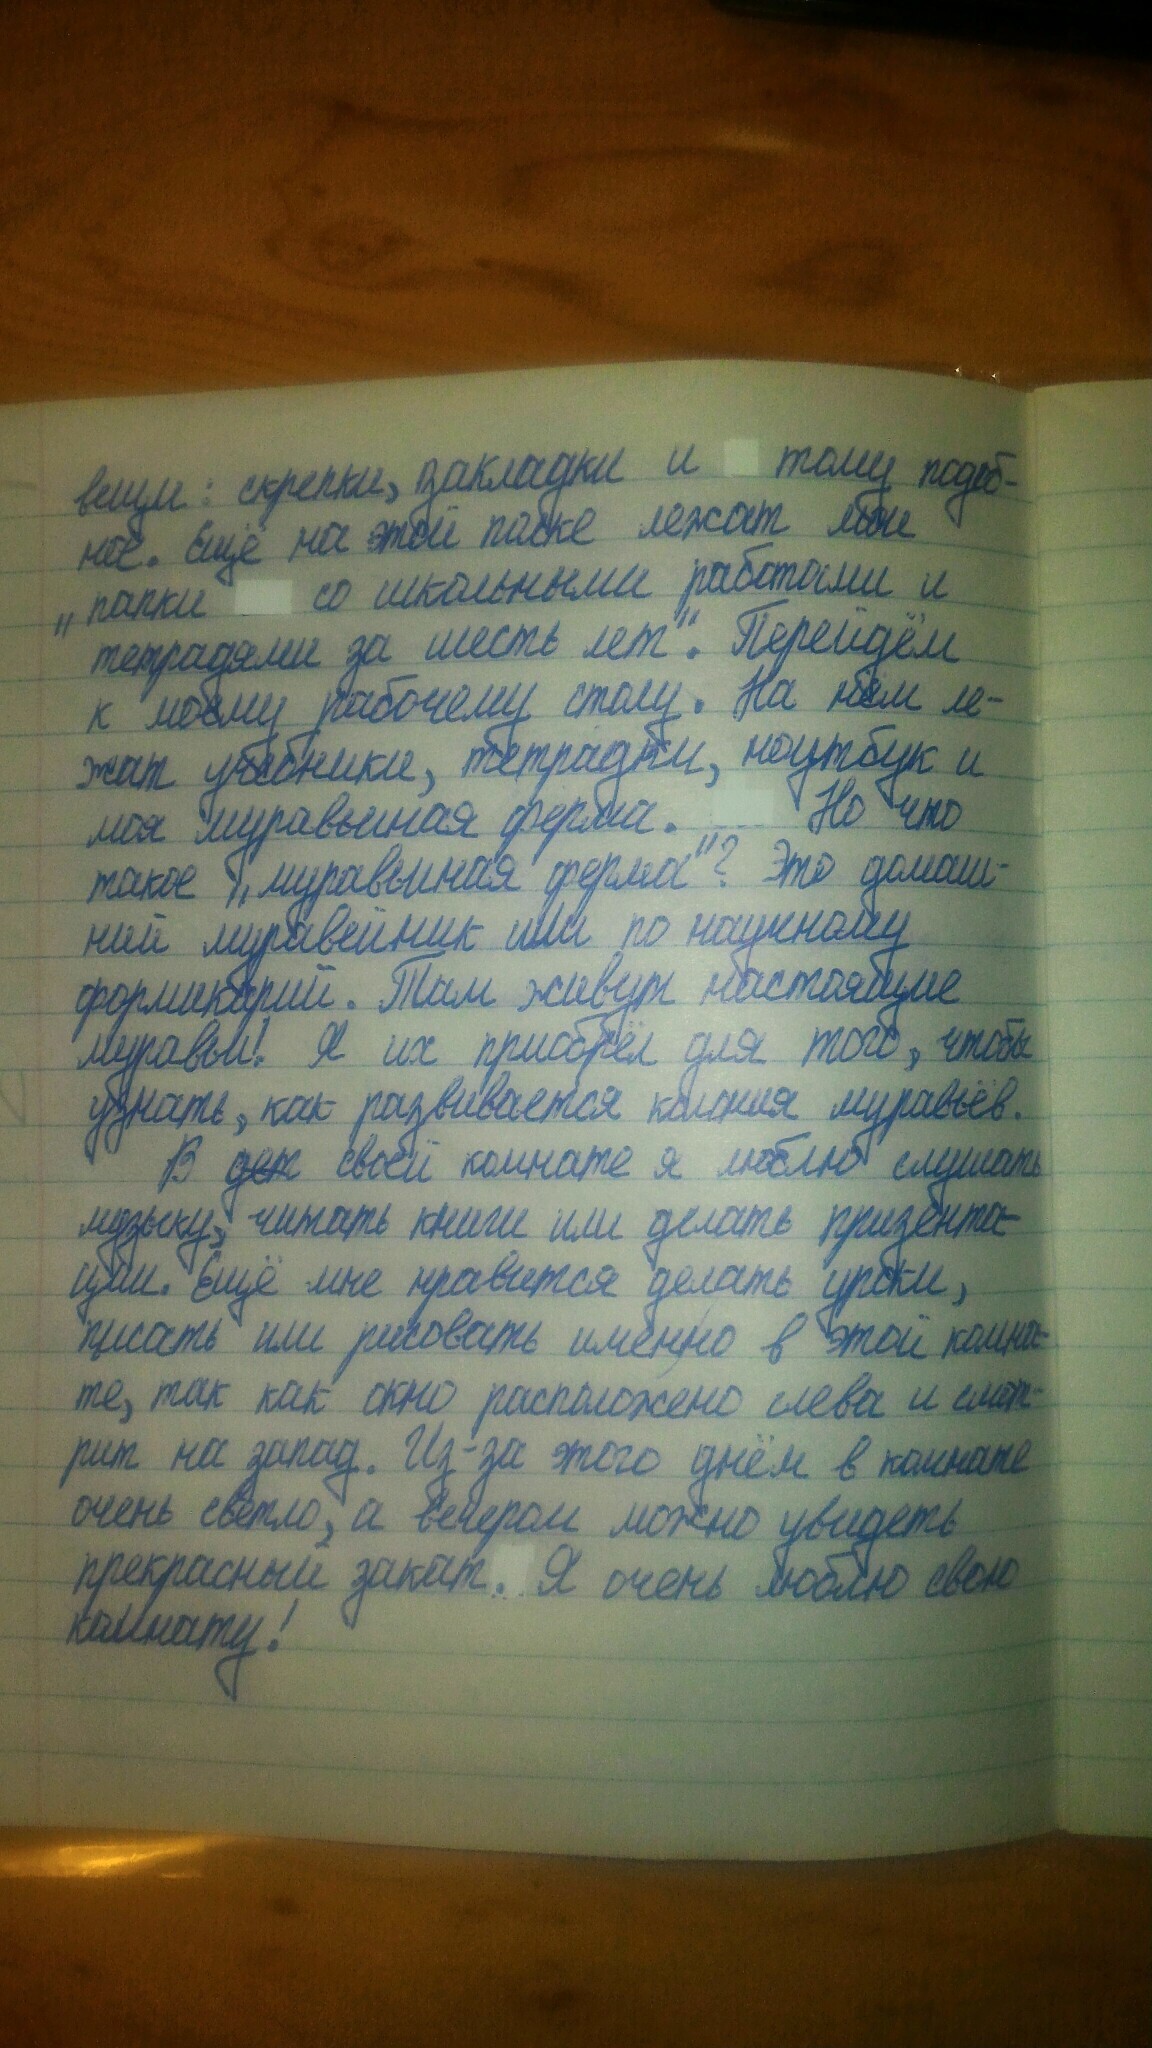 вещи: скрепки, закладки и тому подоб-
ное. Ещё на этой полке лежат мои
„папки со школьными работами и
тетрадями за шесть лет“. Перейдём
к моему рабочему столу. На нём ле-
жат учебники, тетрадки, ноутбук и
моя муравьиная ферма. Но что
такое „муравьиная ферма“? Это домаш-
ний муравейник или по научному
формикарий. Там живут настоящие
муравьи! Я их приобрёл для того, чтобы
узнать, как развивается колония муравьёв.
В своей комнате я люблю слушать
музыку, читать книги или делать призента-
ции. Ещё мне нравится делать уроки,
писать или рисовать именно в этой комна-
те, так как окно расположено слева и смот-
рит на запад. Из-за этого днём в комнате
очень светло, а вечером можно увидеть
прекрасный закат. Я очень люблю свою
комнату!